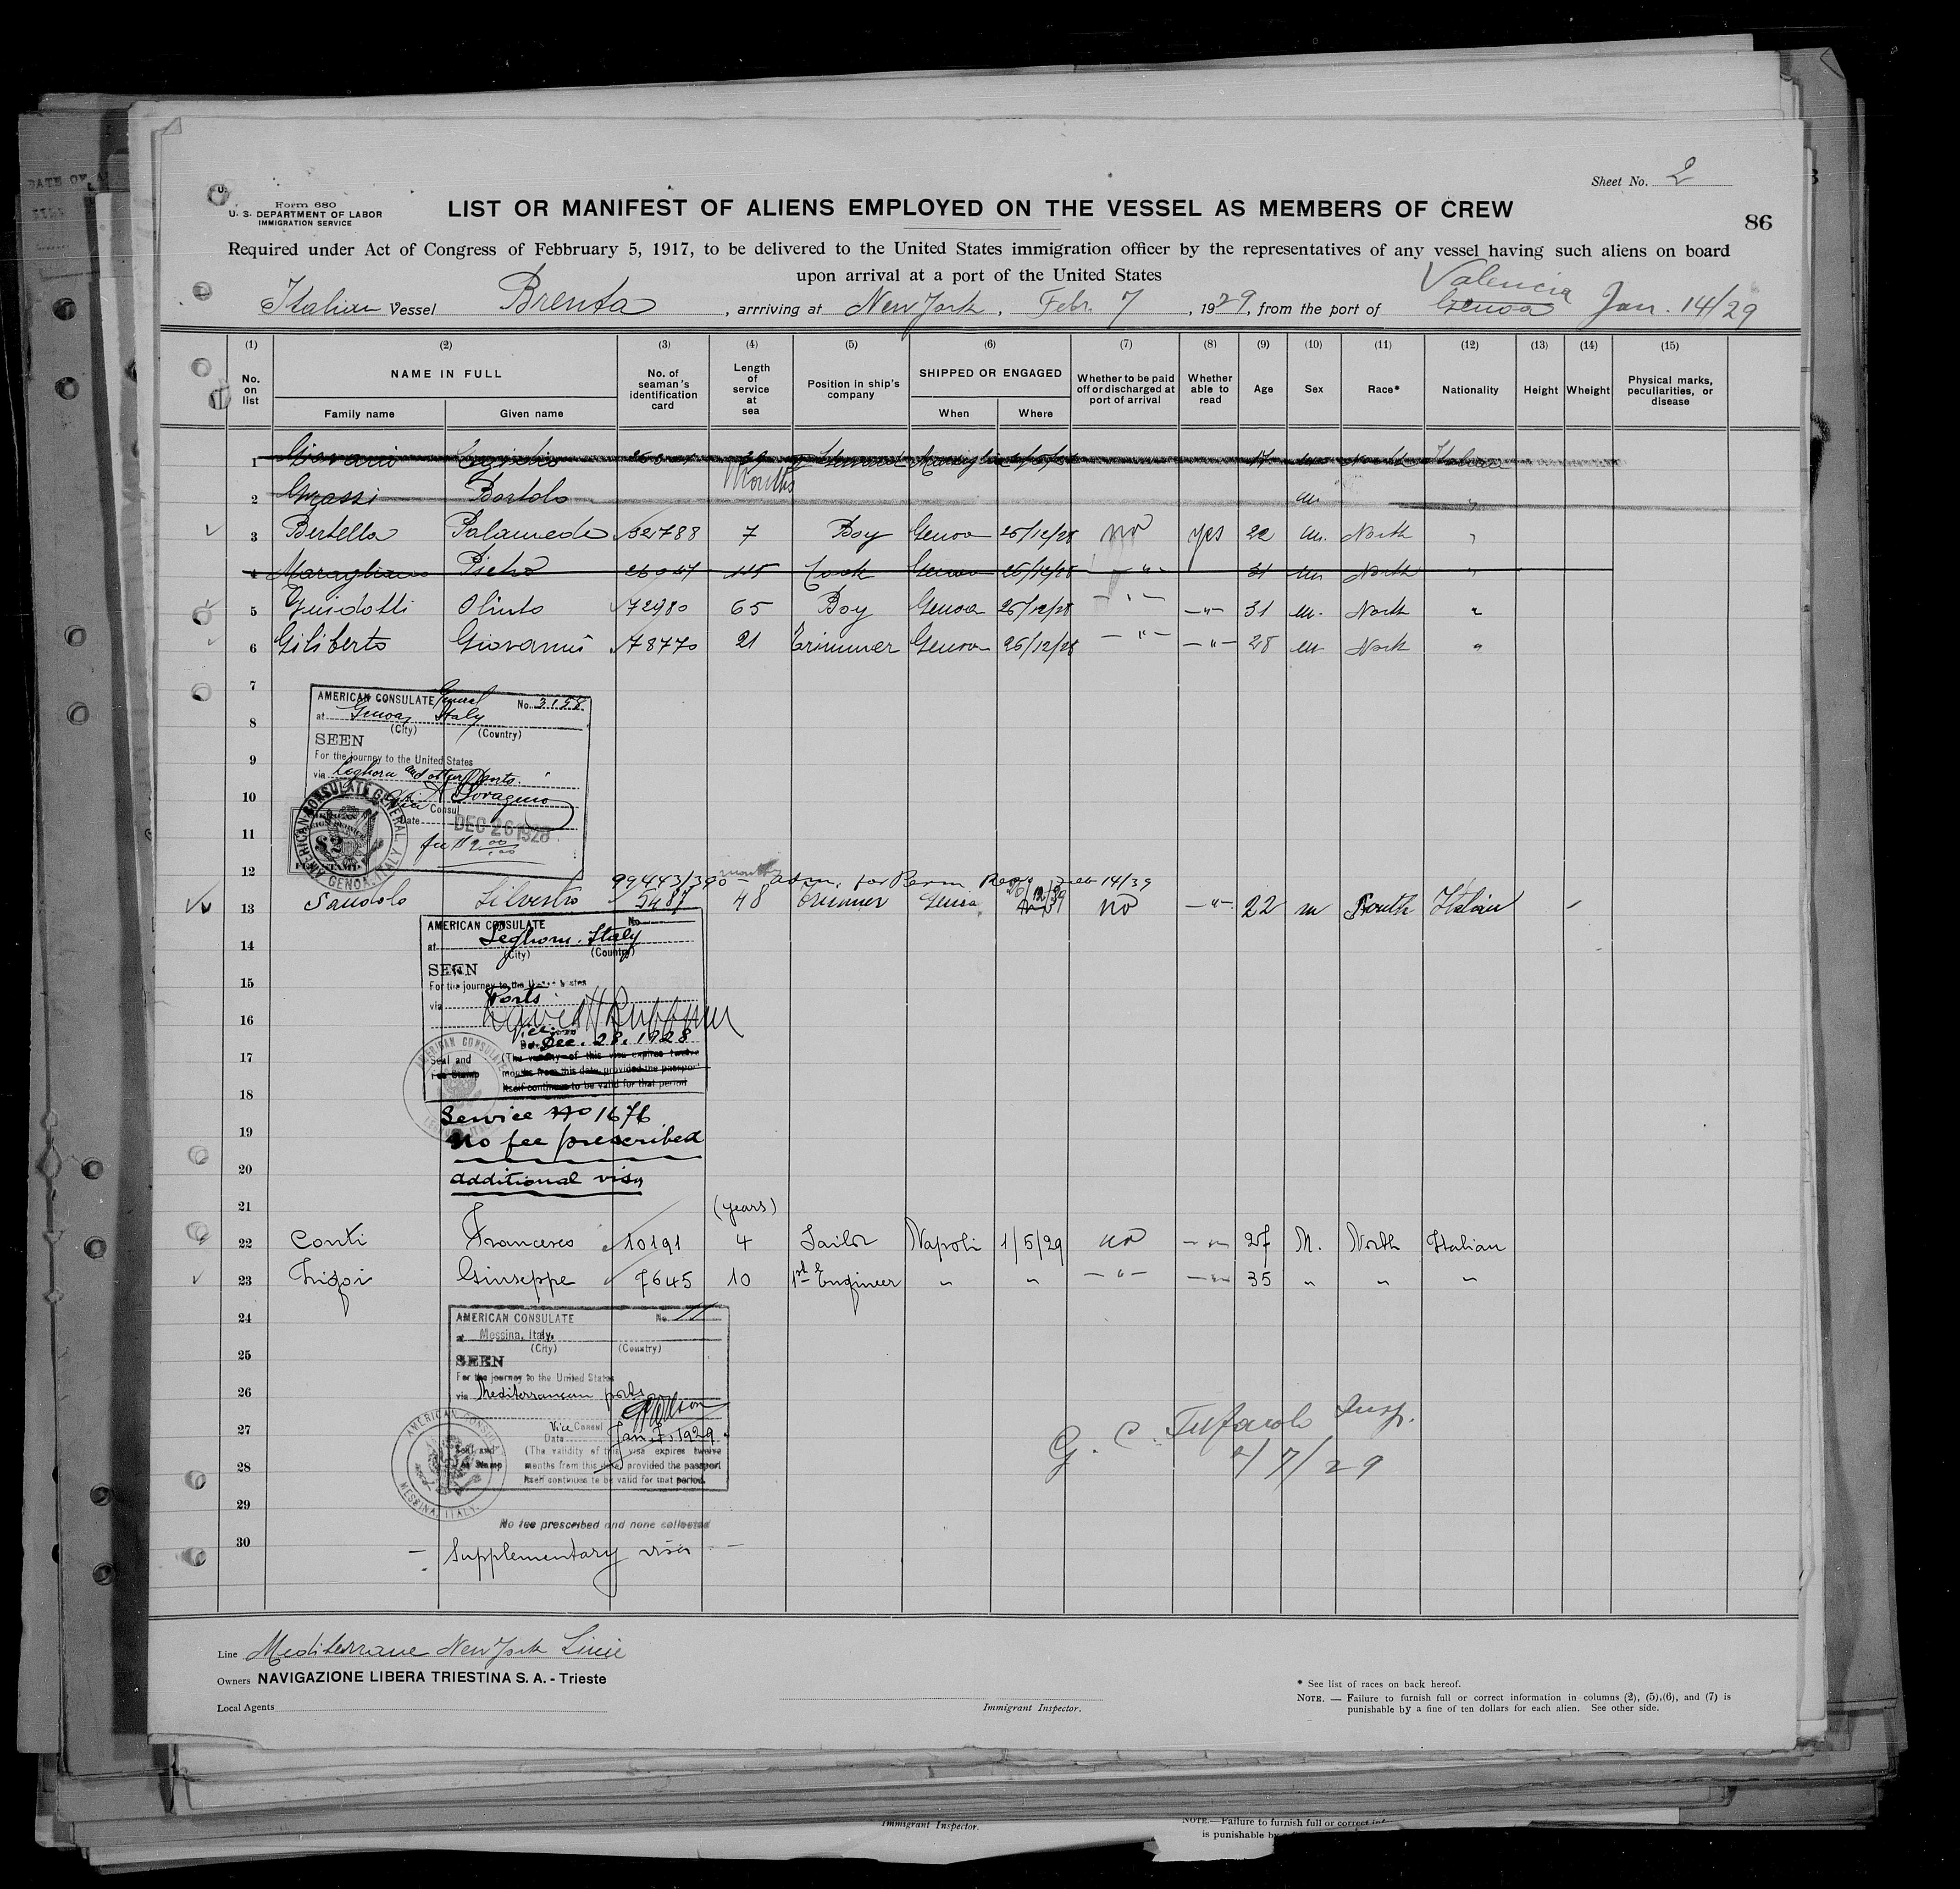 Sheet No. 2
Form 680
U. S. DEPARTMENT OF LABOR
IMMIGRATION SERVICE
LIST OR MANIFEST OF ALIENS EMPLOYED ON THE VESSEL AS MEMBERS OF CREW
86
Required under Act of Congress of Febbruary 5, 1917, to be delivered to the United States immigration officer by the representatives of any vessel having such aliens on board
upon arrival at a port of the United States
Valencia
Italian Vessel Brenta , arrriving at New York , Febr. 7 , 1929, from the port of Genoa Jan. 14/29
(1) (2) (3) (4) (5) (6) (7) (8) (9) (10) (11) (12) (13) (14) (15)
No. on list NAME IN FULL No. of seaman's identification card Length of service at sea Position in ship's company SHIPPED OR ENGAGED Whether to be paid off or discharged at port of arrival Whether able to read Age Sex Race* Nationality Height Wheight Physical marks, peculiarities, or disease
Family name Given name When Where
1 Italian
Months
2 Grassi Bortolo m "
3 Bertella Palamede 52788 7 Boy Genoa 25/12/28 no yes 22 m. North "
4 Maragliano Pietro 26047 115 Cook Genoa 25/12/28 -"- 31 m North "
5 Guidotti Olinto 72980 65 Boy Genoa 25/12/28 -"- -"- 31 m. North "
6 Giliberto Giovanni 78770 21 Trimmer Genoa 26/12/28 -"- -"- 28 m North "
7
AMERICAN CONSULATE General No. 3158
8
at Genoa, Italy
(City) (Country)
SEEN
9
For the journey to the United States
via Leghorn and other Ports.
10
Consul
Date DEC 26 1928
11
fee $2.00
AMERICAN CONSULATE GENERAL GENOA, ITALY
$2
12
99443/390 months adm. for Perm Feb 14/39
13 Sandolo Silvestro 5487 48 Trimmer Genoa no -"- 22 m South Italian
AMERICAN CONSULATE No
14
at Leghorn. Italy
(City) (Country)
SEEN
15
For the journey to the
via Ports
16
Dec. 28. 1928
17
Seal and (The validity of this visa expires twelve
Fee Stamp months from this date, provided the passport
itself continues to be valid for that period
18
AMERICAN CONSULATE
Service No 1676
19
No fee prescribed
20
additional visa
21
(years)
22 Conti Francesco 10191 4 Sailor Napoli 1/5/29 no -"- 27 M. North Italian
23 Giuseppe 7645 10 1st Engineer " " -"- -"- 35 " " "
24
AMERICAN CONSULATE No. 11
at Messina, Italy.
(City) (Country)
25
SEEN
For the journey to the United States
26
via Mediterranean ports
27
Vice Consul
Date Jan. 7. 1929.
(The validity of this visa expires twelve
Seal and
Fee Stamp months from this date, provided the passport
28
itself continues to be valid for that period.
AMERICAN CONSULATE MESSINA, ITALY.
G. C. Tufarolo Insp.
2/7/29
29
No fee prescribed and none collected
30
- Supplementary visa -
Line Mediterrane New York Line
Owners NAVIGAZIONE LIBERA TRIESTINA S. A. - Trieste
Local Agents
Immigrant Inspector.
* See list of races on back hereof.
NOTE. — Failure to furnish full or correct information in columns (2), (5),(6), and (7) is
punishable by a fine of ten dollars for each alien. See other side.
Immigrant Inspector.
NOTE.—Failure to furnish full or correct
is punishable by